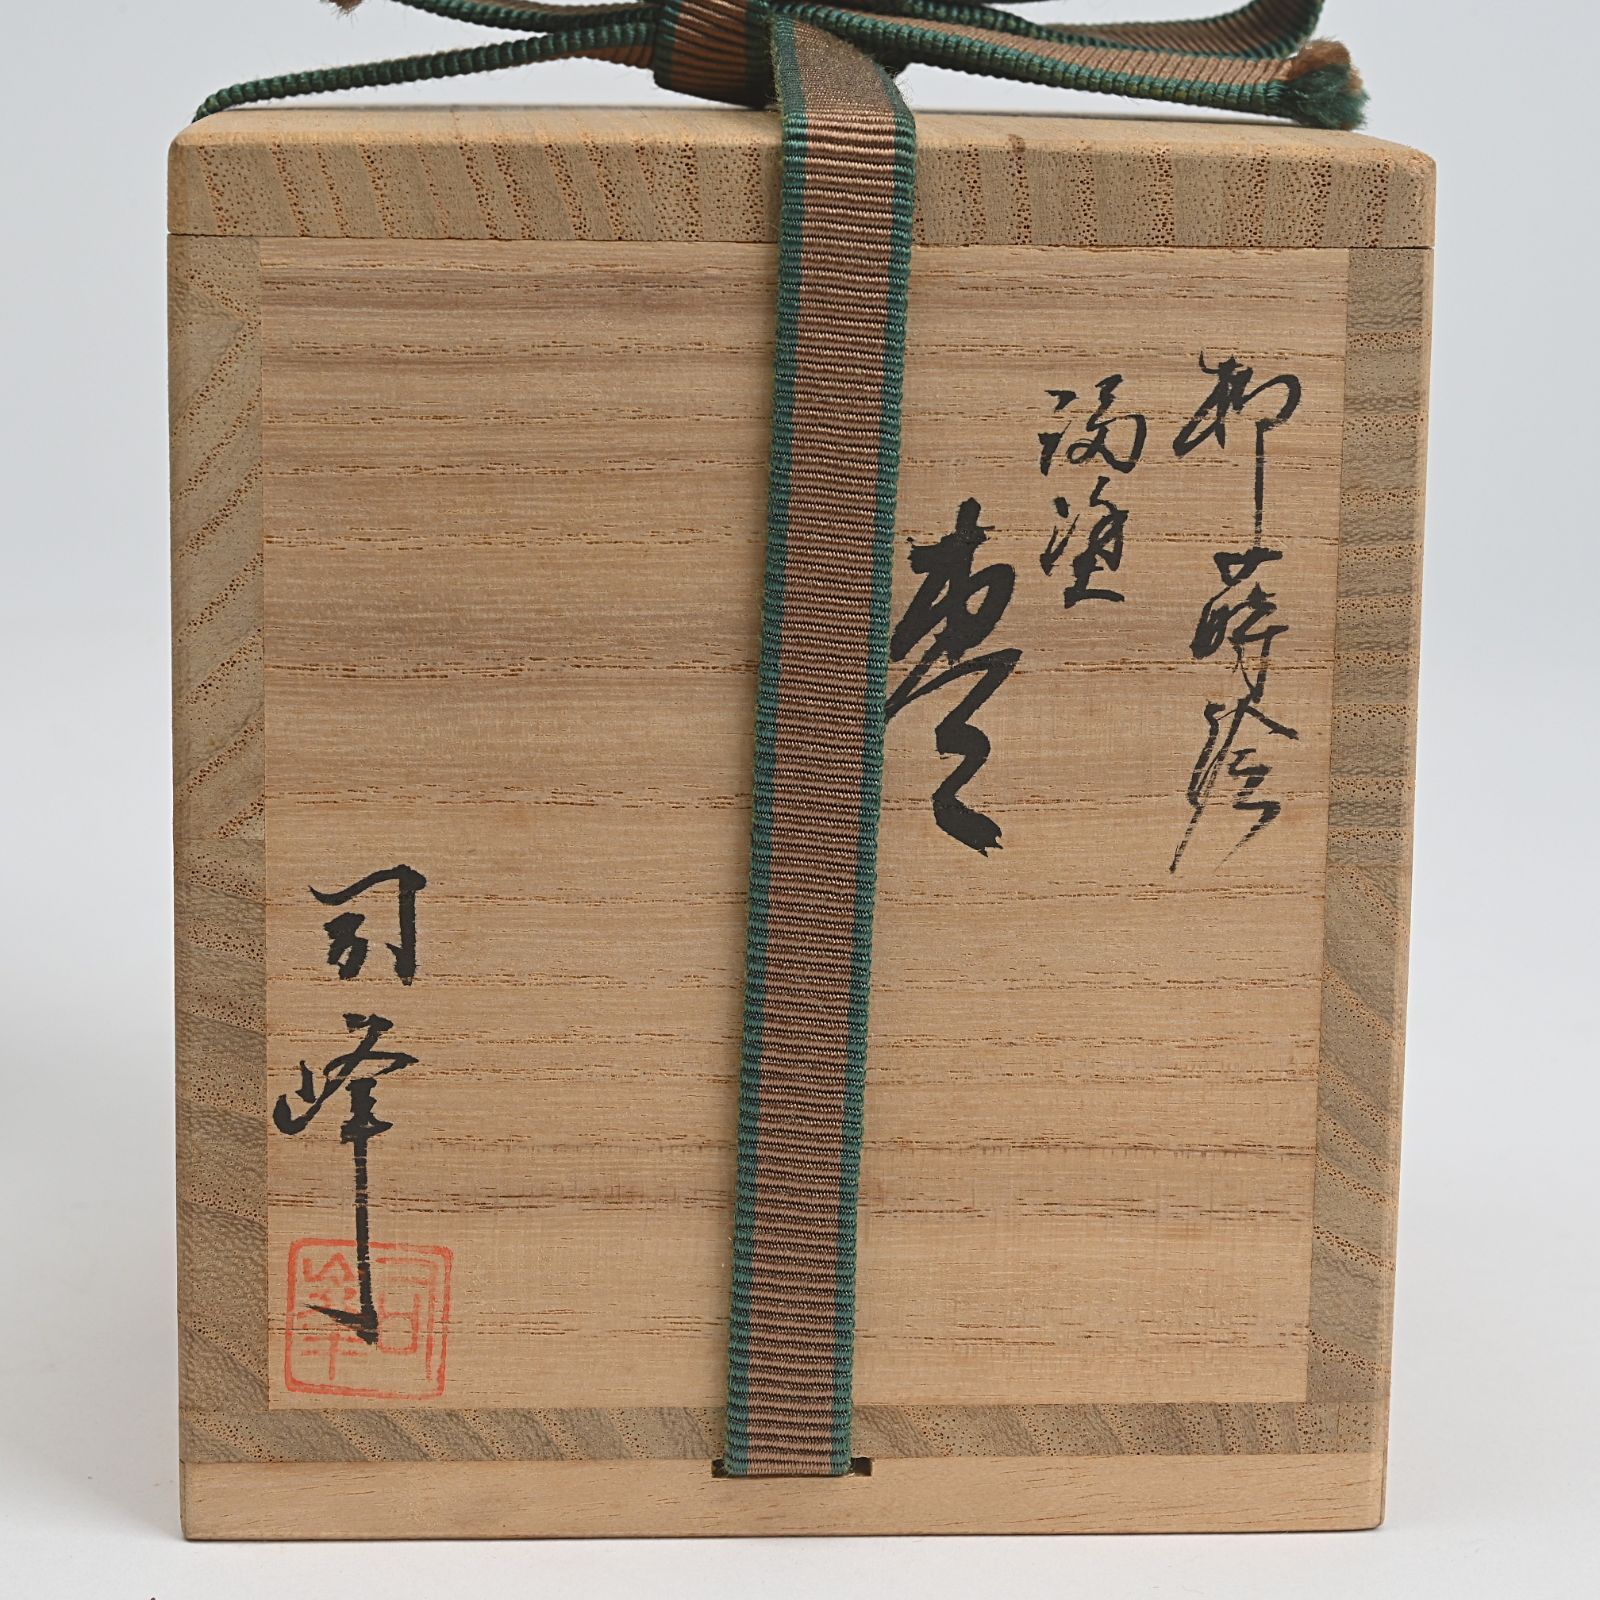 柳蒔絵
溜塗
棗
司峰
司峯